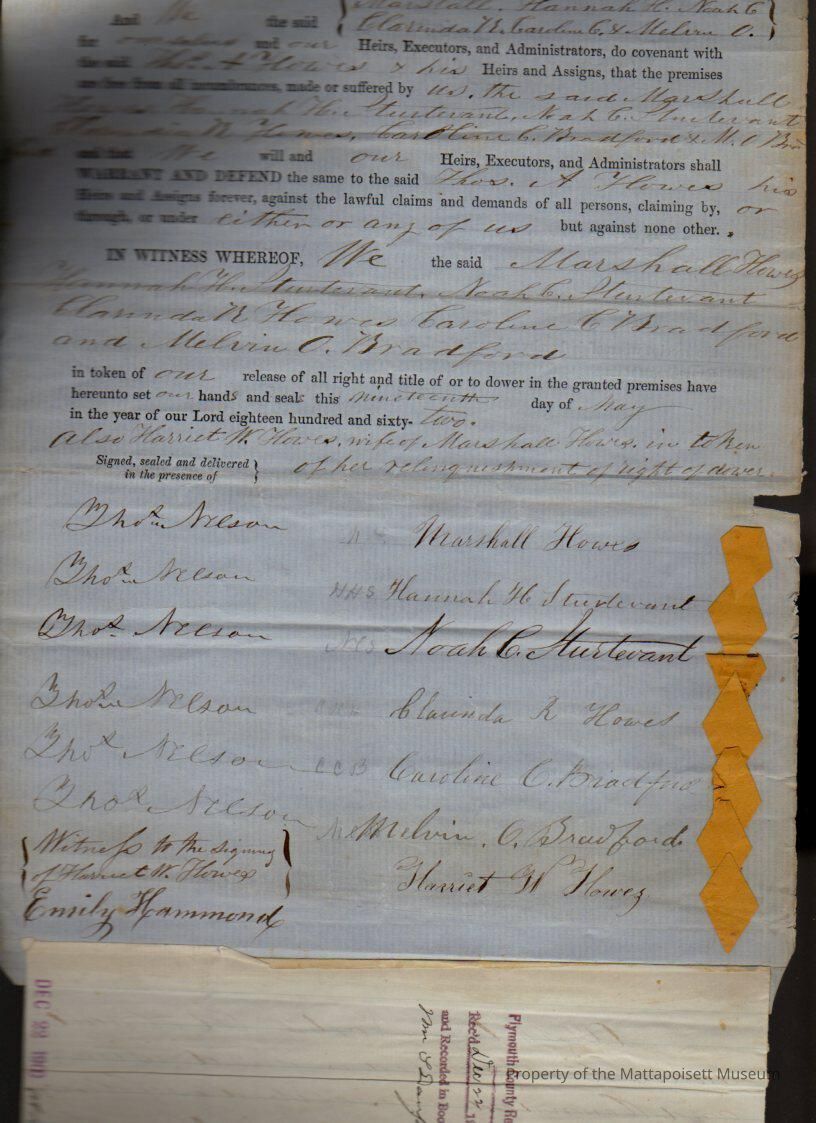 Marshall, Hannah H. Noah C
And We the said Clarinda R. Caroline C. & Melvin O.
for ourselves and our Heirs, Executors, and Administrators, do covenant with
the said Thos. A Howes & his Heirs and Assigns, that the premises
are free from all incumbrances, made or suffered by us, the said Marshall
Hannah H. Sturtevant, Noah C. Sturtevant
Clarinda R Howes, Caroline C. Bradford & M. O Bra
and that We will and our Heirs, Executors, and Administrators shall
WARRANT AND DEFEND the same to the said Thos. A Howes his
Heirs and Assigns forever, against the lawful claims and demands of all persons, claiming by, or
through, or under either or any of us but against none other.
IN WITNESS WHEREOF, We the said Marshall Howes
Hannah H. Sturtevant, Noah C. Sturtevant
Clarinda R Howes Caroline C Bradford
and Melvin O. Bradford
in token of our release of all right and title of or to dower in the granted premises have
hereunto set our hands and seals this nineteenth day of May
in the year of our Lord eighteen hundred and sixty-two.
also Harriet W. Howes, wife of Marshall Howes, in token
of her relinquishment of right of dower.
Signed, sealed and delivered
in the presence of
Thos. Nelson Marshall Howes
Thos. Nelson HHS Hannah H Sturtevant
Thos. Nelson NCS Noah C. Sturtevant
Thos. Nelson Clarinda R Howes
Thos. Nelson CCB Caroline C. Bradford
Thos. Nelson Melvin. O. Bradford
Witness to the signing
of Harriet W. Howes Harriet W Howes
Emily Hammond
DEC 22
Plymouth County Re
Rec'd Dec 22 1
and Recorded in Boo
Wm S Danf
Property of the Mattapoisett Museum